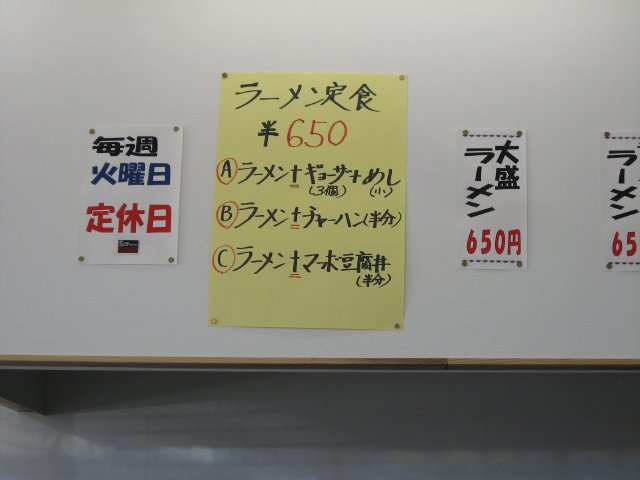 毎週
火曜日
定休日
ラーメン定食
半650
Ⓐラーメン+ギョーザ+めし
(3個) (小)
Ⓑラーメン+チャーハン(半分)
Ⓒラーメン+マーボ豆腐丼
(半分)
大盛
ラーメン
650円
ラーメン
65